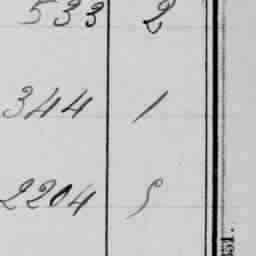 533 2
344 1
2204 5
51.